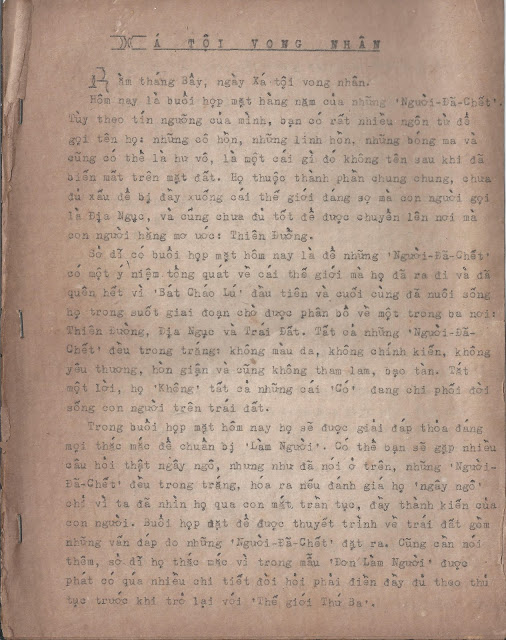 XÁ TỘI VONG NHÂN
Rằm tháng Bảy, ngày Xá tội vong nhân.
Hôm nay là buổi họp mặt hàng năm của những 'Người-Đã-Chết'.
Tùy theo tín ngưỡng của mình, bạn có rất nhiều ngôn từ để
gọi tên họ: những cô hồn, những linh hồn, những bóng ma và
cũng có thể là hư vô, là một cái gì đó không tên sau khi đã
biến mất trên mặt đất. Họ thuộc thành phần chung chung, chưa
đủ xấu để bị đày xuống cái thế giới đáng sợ mà con người gọi
là Địa Ngục, và cũng chưa đủ tốt để được chuyển lên nơi mà
con người hằng mơ ước: Thiên Đường.
Sở dĩ có buổi họp mặt hôm nay là để những 'Người-Đã-Chết'
có một ý niệm tổng quát về cái thế giới mà họ đã ra đi và đã
quên hết vì 'Bát Cháo Lú' đầu tiên và cuối cùng đã nuôi sống
họ trong suốt giai đoạn chờ được phân bổ về một trong ba nơi:
Thiên Đường, Địa Ngục và Trái Đất. Tất cả những 'Người-Đã-
Chết' đều trong trắng: không màu da, không chính kiến, không
yêu thương, hờn giận và cũng không tham lam, bạo tàn. Tắt
một lời, họ 'Không' tất cả những cái 'Có' đang chi phối đời
sống con người trên trái đất.
Trong buổi họp mặt hôm nay họ sẽ được giải đáp thỏa đáng
mọi thắc mắc để chuẩn bị 'Làm Người'. Có thể bạn sẽ gặp nhiều
câu hỏi thật ngây ngô, nhưng như đã nói ở trên, những 'Người-
Đã-Chết' đều trong trắng, hóa ra nếu đánh giá họ 'ngây ngô'
chỉ vì ta đã nhìn họ qua con mắt trần tục, đầy thành kiến của
con người. Buổi họp mặt để được thuyết trình về trái đất gồm
những vấn đáp do những 'Người-Đã-Chết' đặt ra. Cũng cần nói
thêm, sở dĩ họ thắc mắc vì trong mẫu 'Đơn Làm Người' được
phát có quá nhiều chi tiết đòi hỏi phải điền đầy đủ theo thủ
tục trước khi trở lại với 'Thế giới Thứ Ba'.